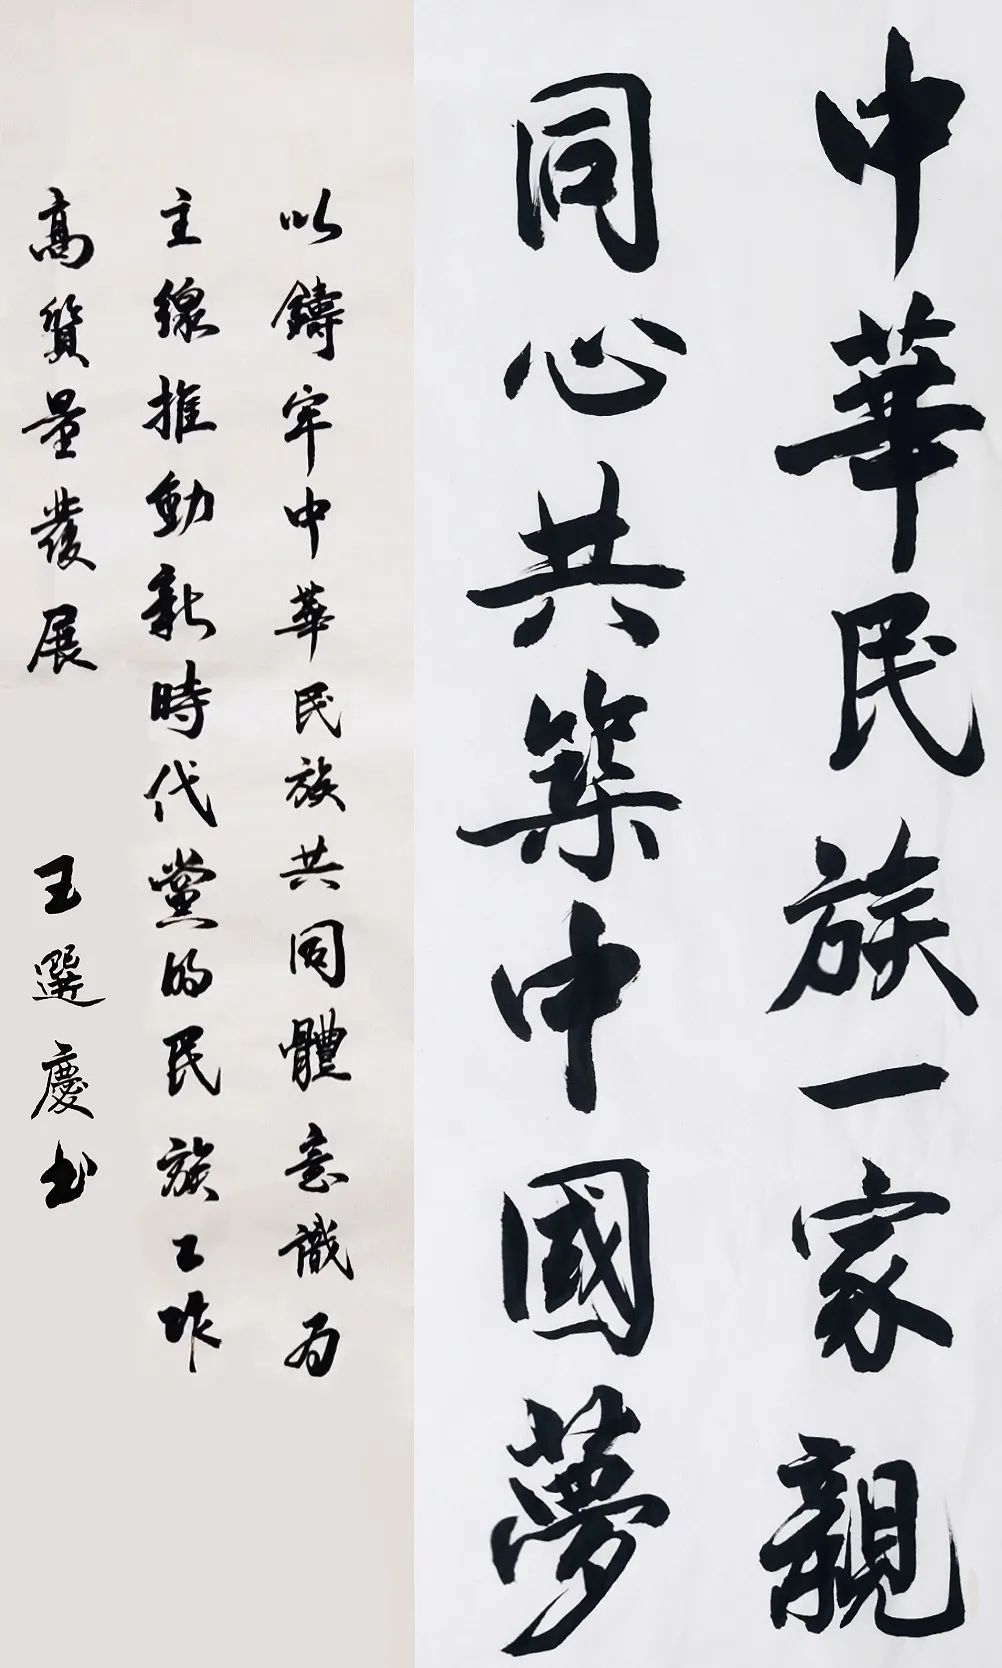 中華民族一家親
同心共築中國夢
以鑄牢中華民族共同體意識为
主線推動新時代黨的民族工作
高質量發展
王選慶书